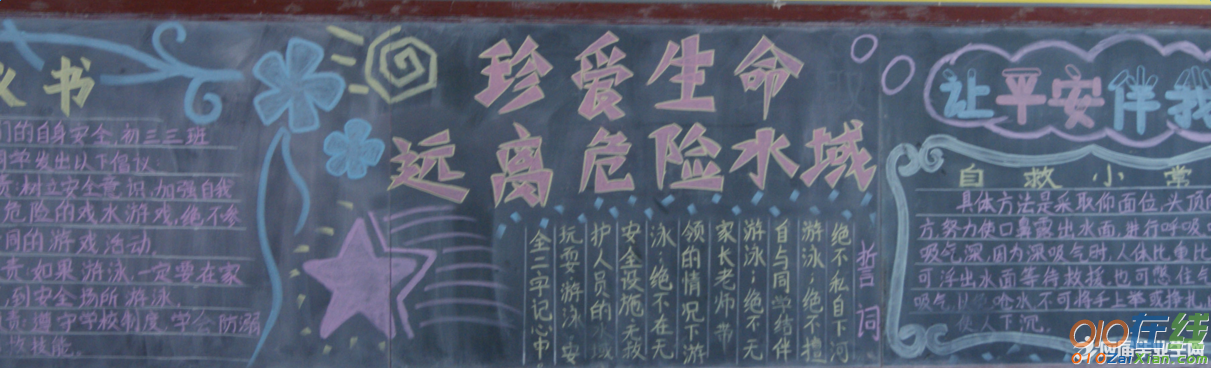 议书
们的自身安全,初三三班
同学发出以下倡议:
责:树立安全意识,加强自我
危险的戏水游戏,绝不参
同的游戏活动.
责:如果游泳,一定要在家
,到安全场所游泳.
责:遵守学校制度,学会防溺
技能.
珍爱生命
远离危险水域
誓词
绝不私自下河
游泳;绝不擅
自与同学结伴
游泳;绝不无
家长老师带
领的情况下游
泳;绝不在无
安全设施无救
护人员的水域
玩耍游泳,安
全二字记心中
让平安伴我
自救小常
具体方法是采取仰面位,头顶
方,努力使口鼻露出水面,进行呼吸
吸气深,因为深吸气时,人体比重比
可浮出水面等待救援,也可憋住气
吸气以免呛水不可将手上举或挣扎
使人下沉.
010在线
应届毕业生网
010zaixian.com